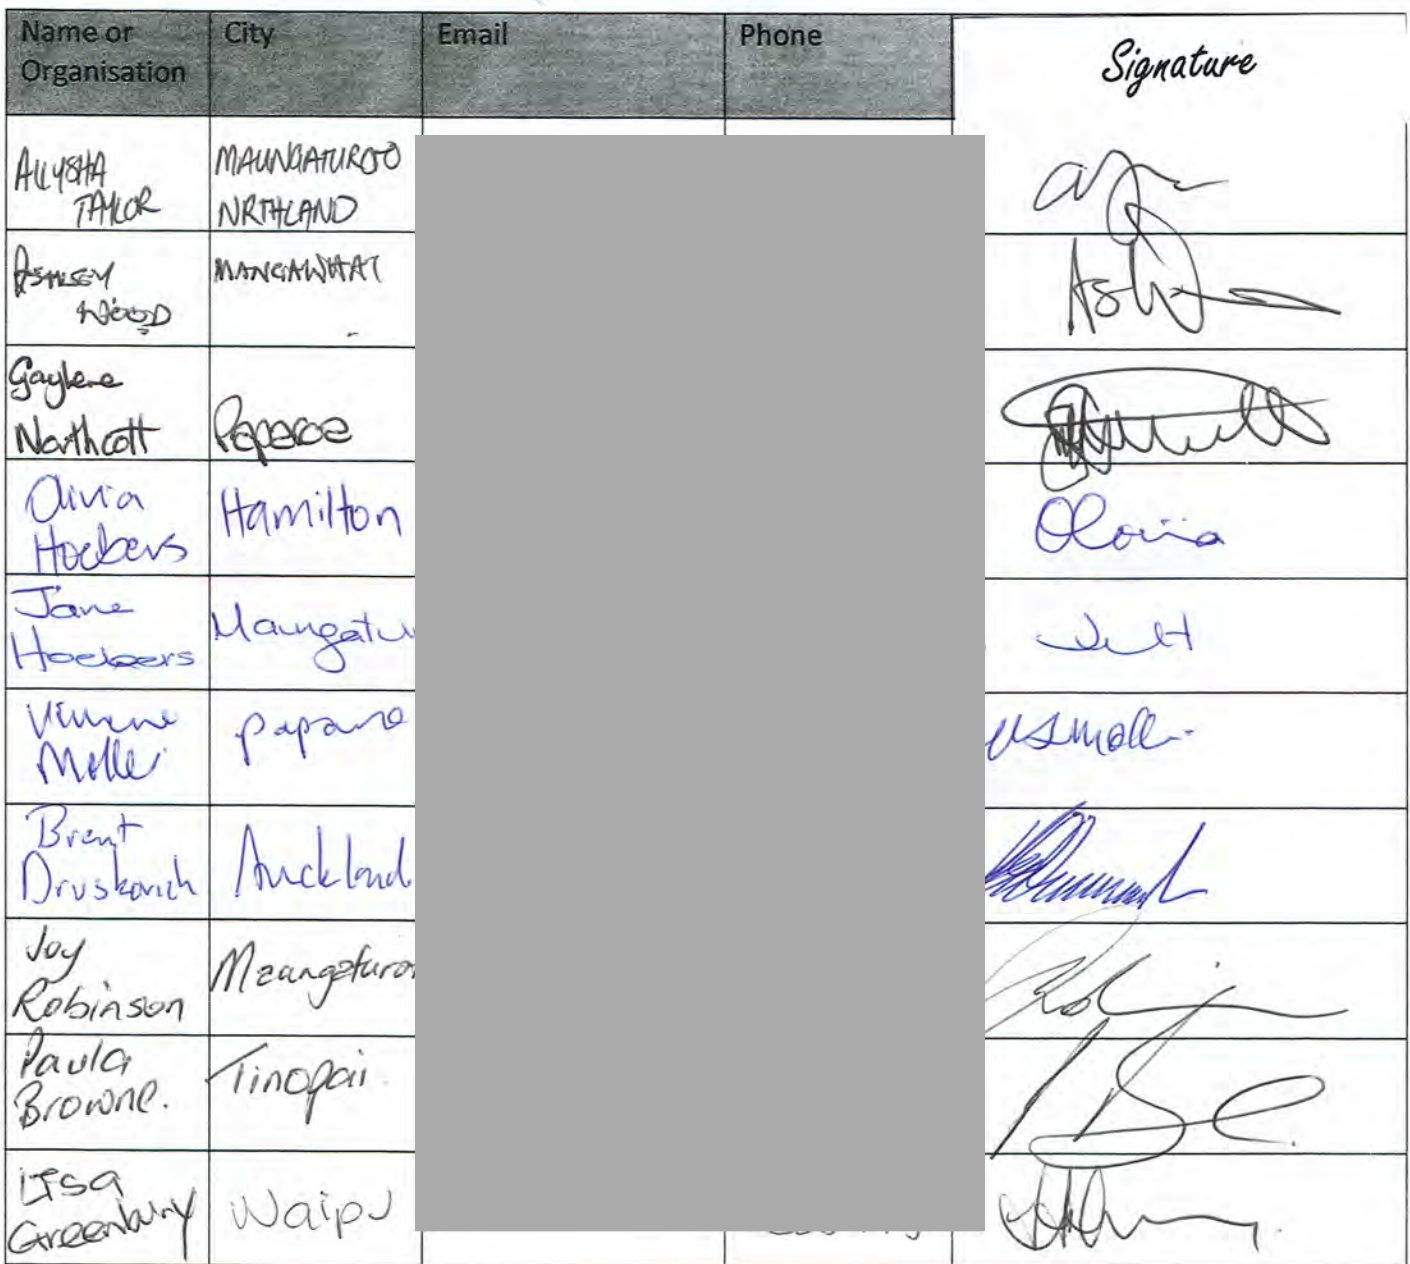 Name or
Organisation
City
Email
Phone
Signature
ALLYSHA
TAYLOR
MAUNGATUROTO
NRTHLAND
ASHLEY
WOOD
MANGAWHAI
Gaylene
Northcott
Paparoa
Olivia
Hoebers
Hamilton
Olovia
Jane
Hoebers
Maungatu
Paparoa
Brent
Druskovich
Auckland
Joy
Robinson
Maungaturo
Paula
Browne.
Tinopai
Lisa
Greenbury
Waipu